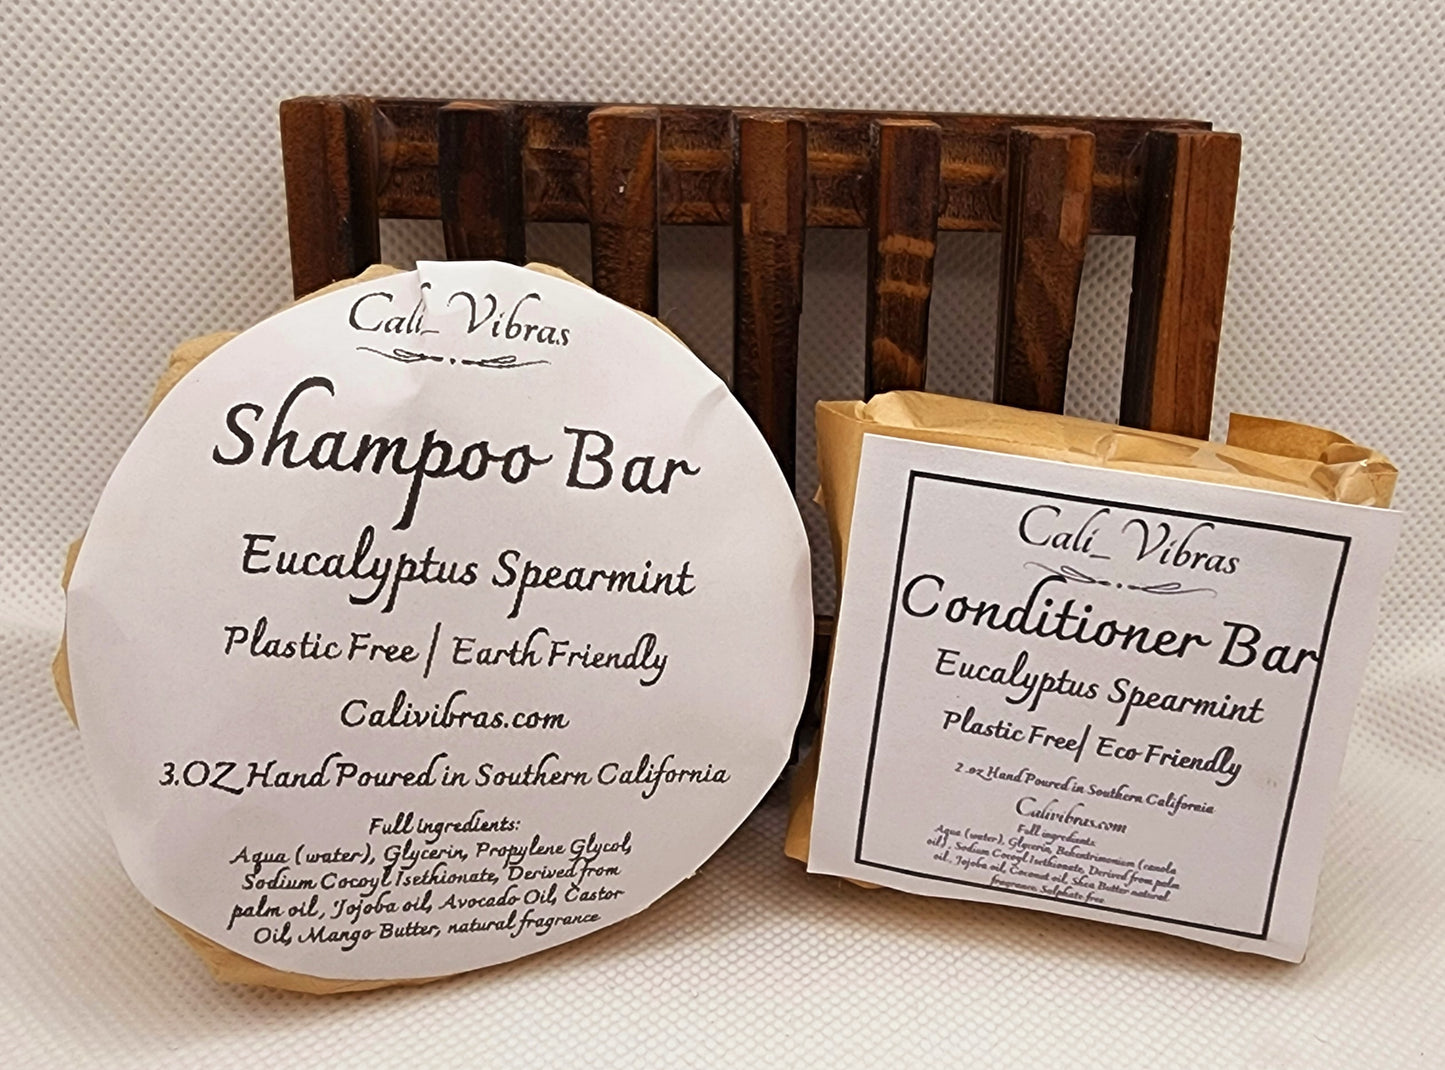 Cali_Vibras
Shampoo Bar
Eucalyptus Spearmint
Plastic Free | Earth Friendly
Calivibras.com
3.OZ Hand Poured in Southern California
Full Ingredients:
Aqua (water), Glycerin, Propylene Glycol,
Sodium Cocoyl Isethionate, Derived from
palm oil, Jojoba oil, Avocado Oil, Castor
Oil, Mango Butter, natural fragrance
Cali_Vibras
Conditioner Bar
Eucalyptus Spearmint
Plastic Free| Eco Friendly
2 .oz Hand Poured in Southern California
Calivibras.com
Full ingredients
Aqua (water), Glycerin, Behentrimonium (canola
oil) , Sodium Cocoyl Isethionate, Derived from palm
oil , Jojoba oil, Coconut oil, Shea Butter natural
fragrance. Sulphate free